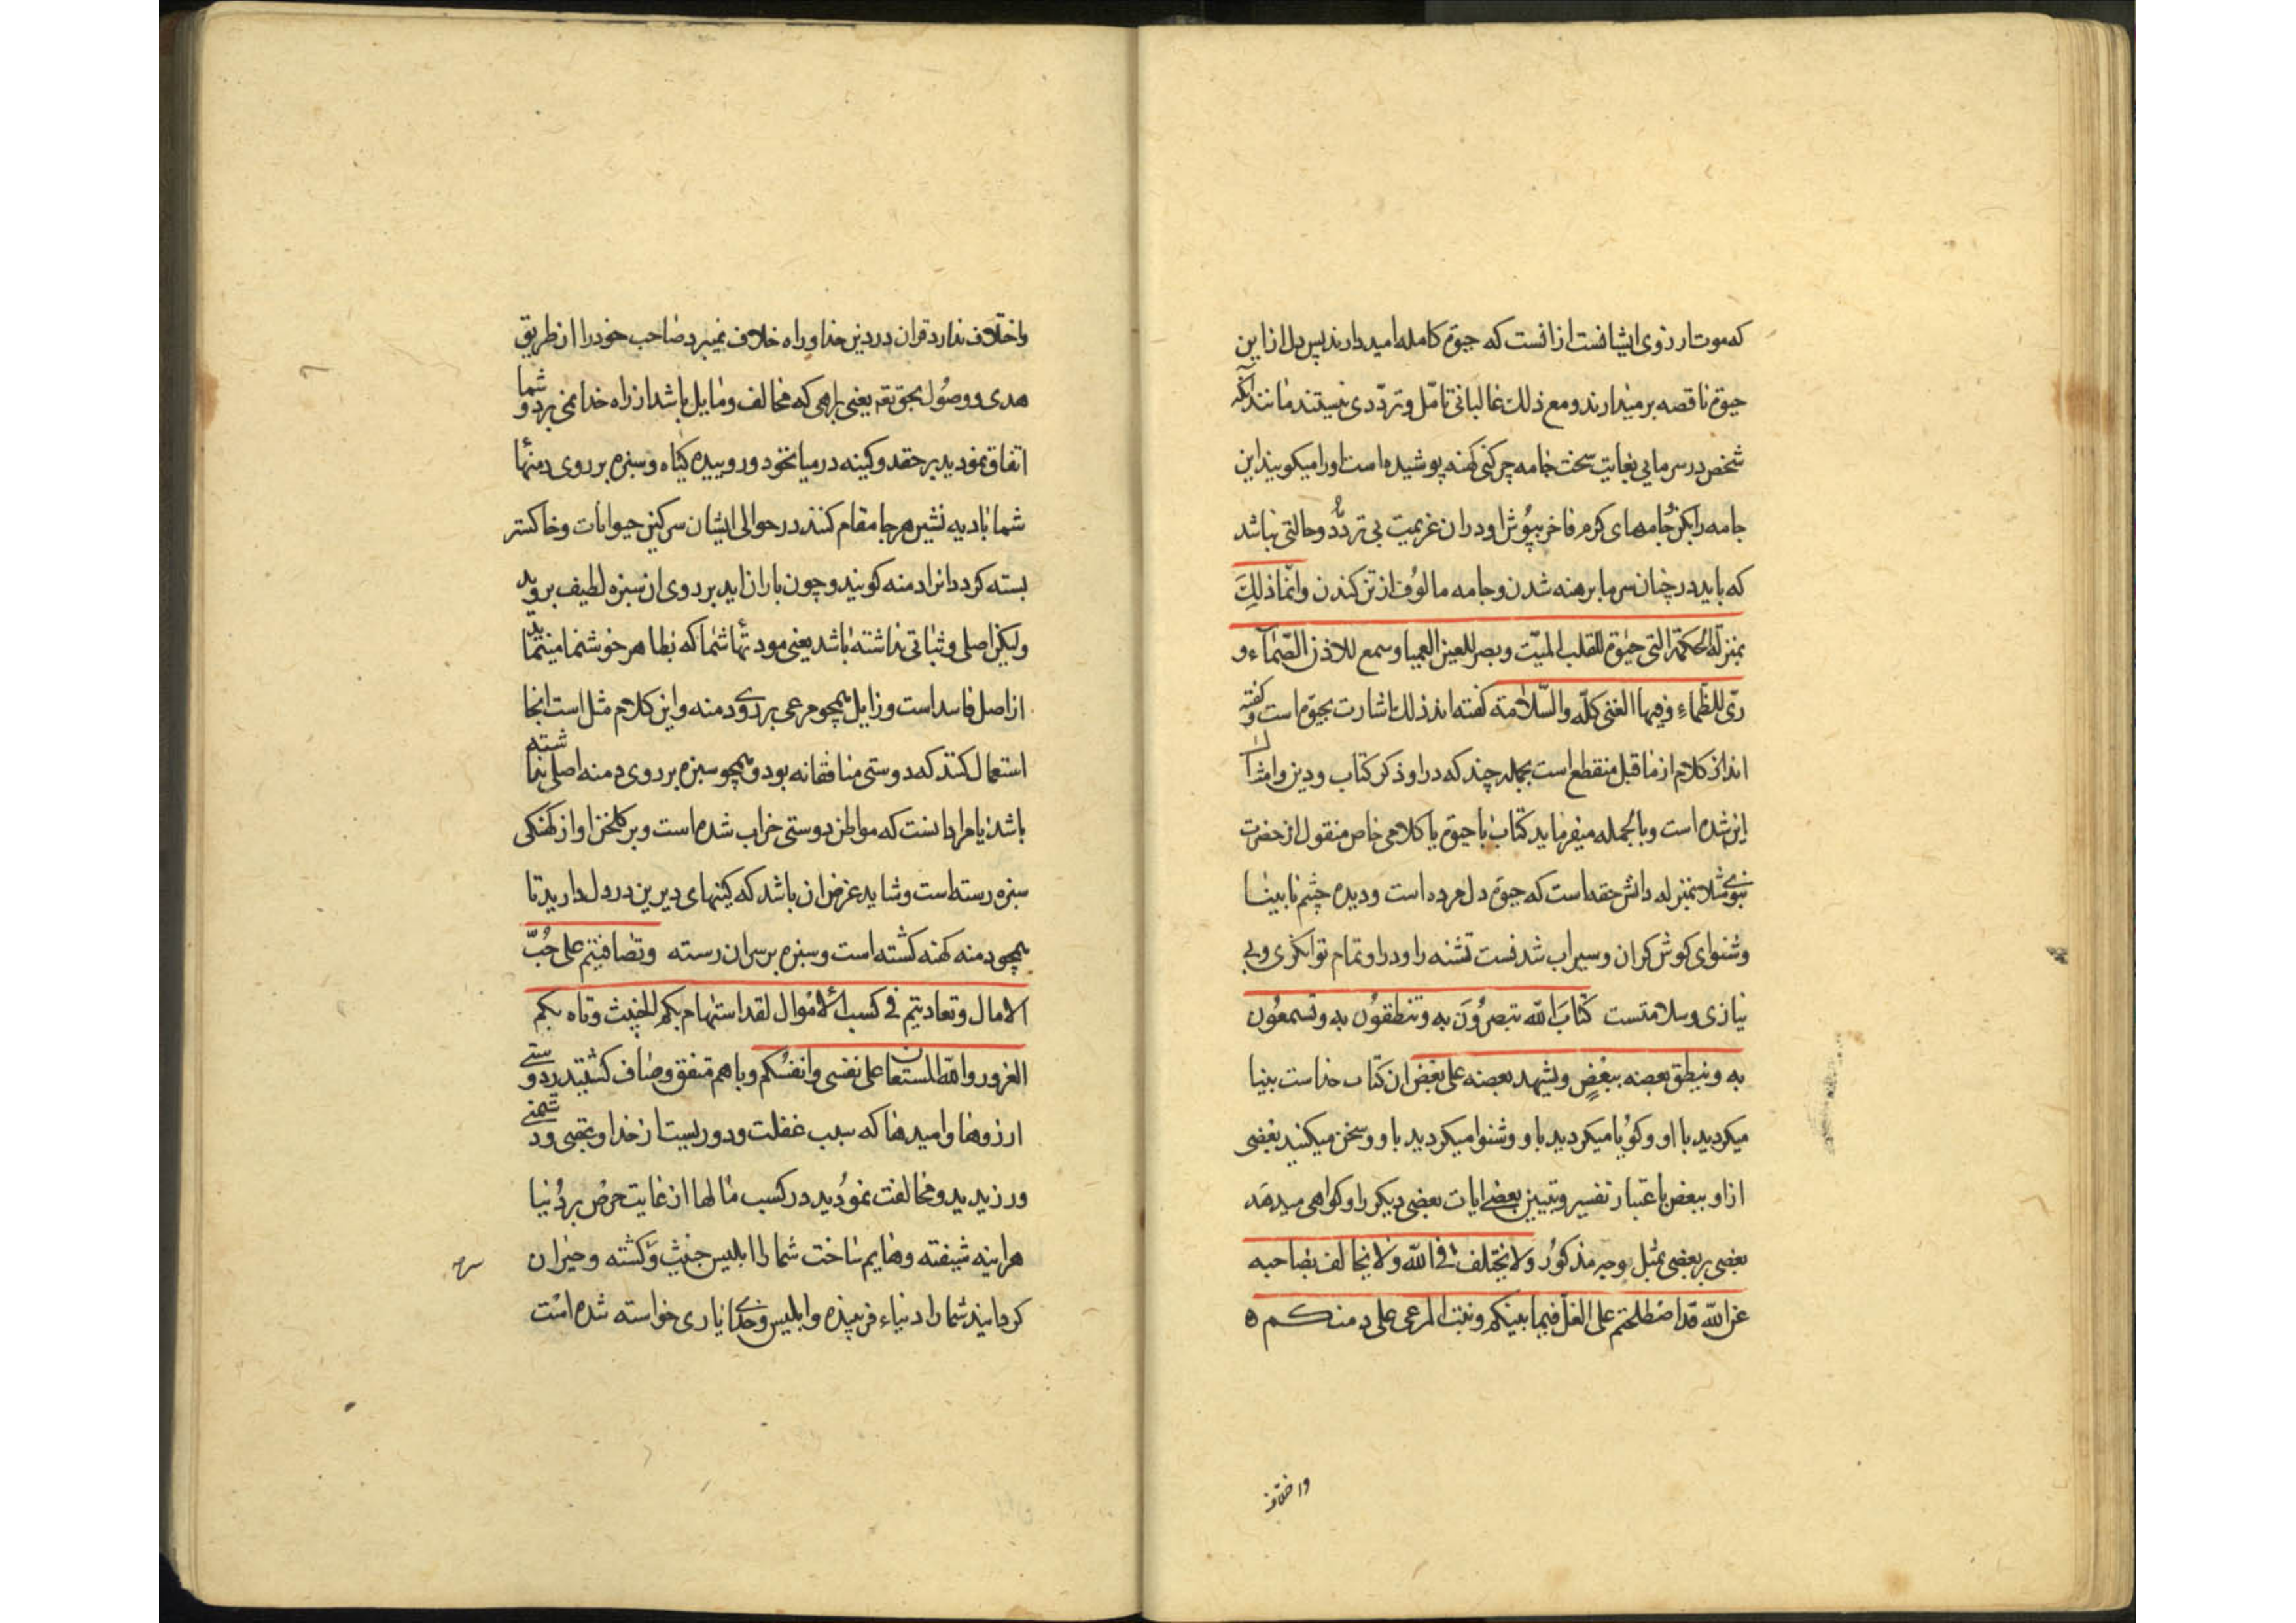 که موت ارزوی ایشانست ازانست که حیوة کامله امید دارند پس دل ازاین
حیوة ناقصه برمیدارند و مع ذلك غالبا بی تامّل و تردّدی نیستند مانند آنکه
شخص در سرمایی بغایت سخت جامه چرکنی کهنه پوشیده است اورا میکویند این
جامه را بکن و جامهای کرم فاخر بپوش او دران عزیمت بی تردّد و حالتی نباشد
که باید در چنان سرما برهنه شدن و جامه مالوف از تن کندن وانّما ذلِكَ
بمنزلة الحکمة التی حیٰوة للقلب المیّت وبصر للعین العمیا وسمع للاذن الصّمآء و
ریّ للظّماء وفیها الغنی کلّه والسّلامة کفته اند ذلك اشارت بحیوة است و کفته
اند این کلام از ماقبل منقطع است بجمله چند که در او ذکر کتاب و دین و امثال
این شده است و بالجمله میفرماید کتاب یا حیوة یا کلامی خاص منقول از حضرت
نبوی مثلا بمنزله دانش حقه است که حیوة دل مرده است و دیده چشم نابینا
و شنوای کوش کران و سیراب شدنست تشنه را و در او تمام توانکری و بی
نیازی و سلامتست کتابَ اللّه تبصرُونَ به وتنطقوُن به وتسمعوُن
به وینطق بعضه ببعْضٍ ویشهد بعضه علی بعْض ان کتاب خداست بینا
میکردید با او و کوُیا میکردید باو و شنوا میکردید باو و سخن میکنید بعضی
ازاو ببعض باعتبار تفسیر و تبیین بعضے ایات بعضی دیکر را و کواهی میدهَد
بعضی بر بعضی بمثل وجه مذکوُر ولا یختلف فی اللّه ولا یخالف بصاحبه
عن اللّه قد اصْطلحتم علی الغلّ فیما بینکم ونبت المرعی علی دمنکم ه
واختلاف
واختلاف ندارد قران در دین خدا و راه خلاف نمیبرد صاحب خود را از طریق
هدی و وصُول بحق تعه یعنی براهی که مخالف و مایل باشد از راه خدا نمی برد و شما
اتفاق نمودید بر حقد و کینه در میان خود و روییده کیاه و سبزه بر روی دمنها
شما بادیه نشین هرجا مقام کنند در حوالی ایشان سرکین حیوانات و خاکستر
بسته کردد انرا دمنه کویند و چون باران اید بر روی ان سبزه لطیف بروید
ولیکن اصلی و ثباتی نداشته باشد یعنی مودتها شما که بظاهر خوشنما مینماید
از اصل فاسد است و زایل همچو مرعی بر روی دمنه و این کلام مثل است انجا
استعمال کنند که دوستی منافقانه بود و همچو سبزه بر روی دمنه اصلی نداشته
باشد یا مراد انست که مواطن دوستی خراب شده است و بر کلخن او از کهنکی
سبزه رسته است و شاید غرض ان باشد که کینهای دیرین در دل دارید تا
همچو دمنه کهنه کشته است و سبزه بر سر ان رسته وتصافیتم علی حُبّ
الامال وتعادیتم فی کسب الأمْوال لقد استهام بکم الخبیث وتاه بکم
الغرور واللّه المستعان علی نفسی وانفسُکم و باهم متفق و صاف کشتید در دوستی
ارزوها و امیدها که سبب غفلت و دوریست از خدا و عقبی و دشمنی
ورزیدید و مخالفت نموُدید در کسب مالها از غایت حرص بر دُنیا
هراینه شیفته و هایم ساخت شما را ابلیس خبیث و کشته و حیران
کردانید شما را دنیاء فریبنده و ابلیس و خدای یاری خواسته شده است